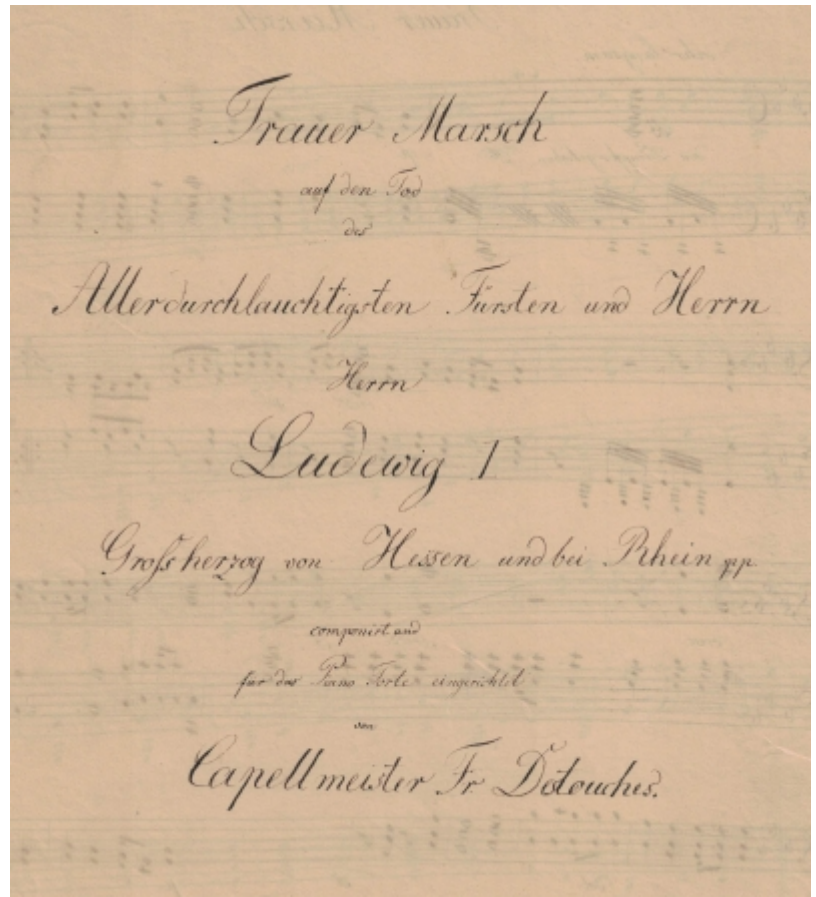 Trauer Marsch
auf den Tod
des
Allerdurchlauchtigsten Fürsten und Herrn
Herrn
Ludewig I
Grossherzog von Hessen und bei Rhein pp.
componirt und
für das Piano Forte eingerichtet
von
Capellmeister Fr. Détouches.